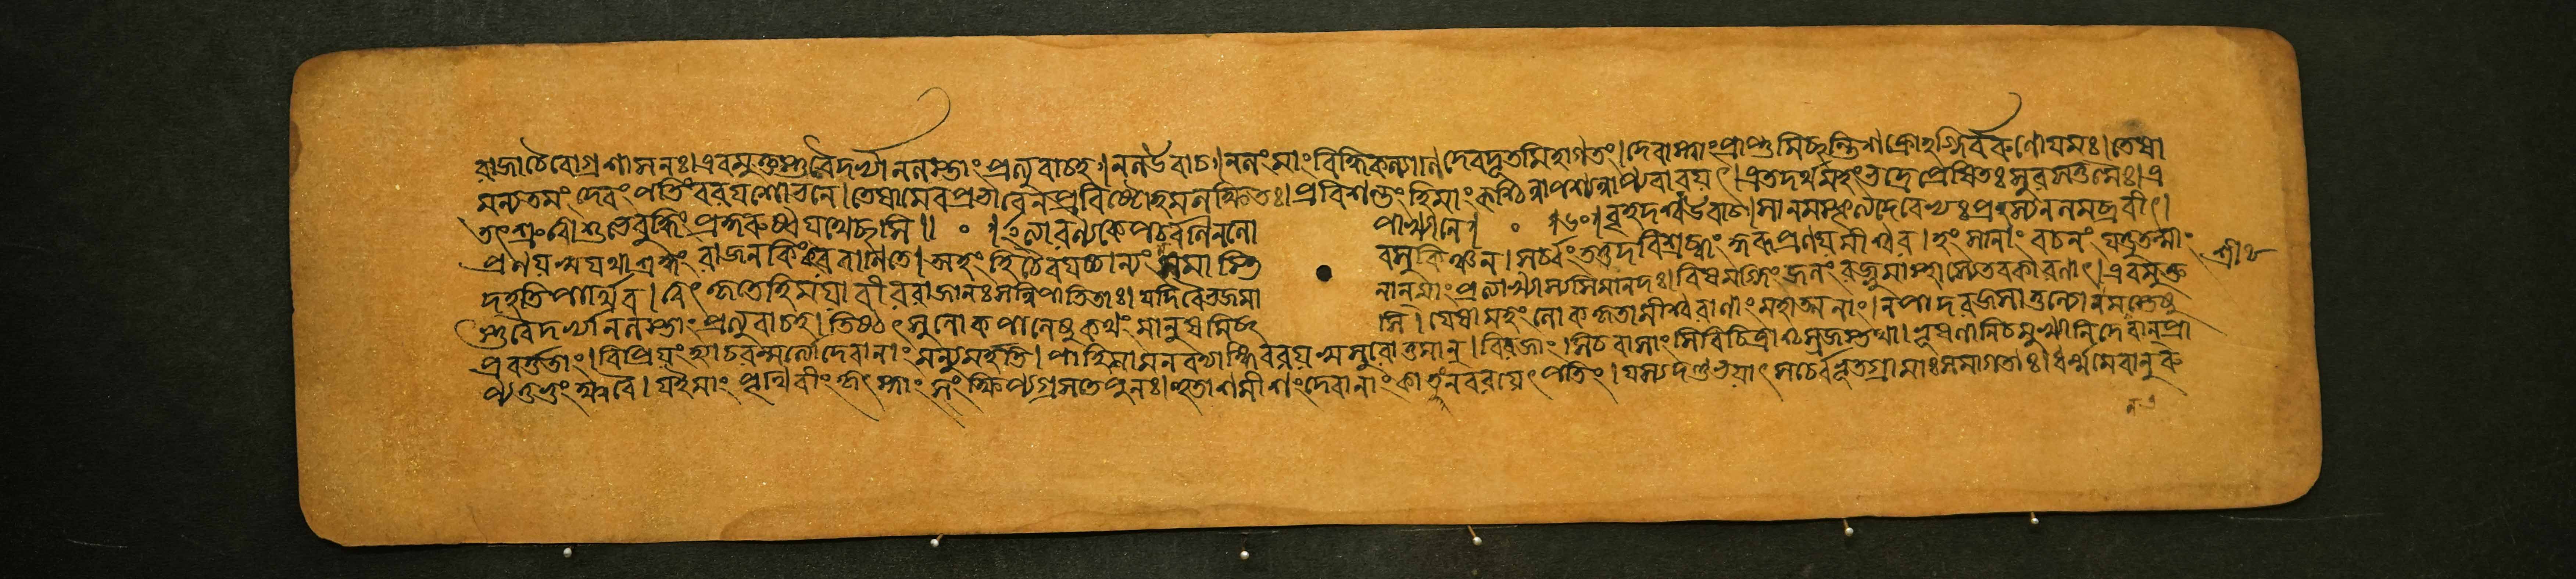 রাজ্ঞাচৈবোগ্রশাসনঃ।এবমুক্তস্তুবৈদর্ভ্যানলস্তাং প্রত্যুবাচহ।নলউবাচ।নলংমাংবিদ্ধিকল্যাণিদেবদূতমিহাগতং।দেবাস্ত্বাংপ্রাপ্তুমিচ্ছন্তিশক্রোঽগ্নির্বরুণোযমঃ।তেষা
মন্যতমংদেবংপতিংবরয়শোভনে।তেষামেবপ্রভাবেনপ্রবিষ্টোহমলক্ষিতঃ।প্রবিশন্তংহিমাংকশ্চিন্নাপশ্যন্নাপ্যবারয়ৎ।এতদর্থমহংভদ্রেপ্রেষিতঃসুরসত্তমৈঃ।এ
তৎশ্রুত্বাশুভেবুদ্ধিংপ্রকুরুষ্বযথেচ্ছসি॥ ॰ ।ইত্যারণ্যকেপর্বণিনলো পাখ্যানে। ॰ বৃহদশ্বউবাচ।সানমস্কৃত্যদেবেভ্যঃপ্রহস্যনলমব্রবীৎ।
প্রণয়স্বযথাশ্রদ্ধংরাজনকিংকরবাণিতে।অহংহিচৈবযচ্চান্যংমমাস্তি বসুকিঞ্চন।সর্ব্বংতত্তববিশ্রব্ধংকুরুপ্রণয়মীশ্বর।হংসানাংবচনংযত্তুতন্মাং
দহতিপার্থিব।ত্বৎকৃতেহিময়াবীররাজানঃসন্নিপাতিতাঃ।যদিবৈভজমা নানমাংপ্রত্যাখ্যাস্যসিমানদঃ।বিষমগ্নিংজলংরজ্জুমাস্থাস্যেতবকারণাৎ।এবমুক্ত
স্তুবৈদর্ভ্যানলস্তাংপ্রত্যুবাচহ।তিষ্ঠৎসুলোকপালেষুকথংমানুষমিচ্ছ সি।যেষামহংলোককৃতামীশ্বরাণাংমহাত্মনাং।নপাদরজসাতুল্যোমনস্তেষু
প্রবর্ত্ততাং।বিপ্রিয়ংহ্যাচরন্মর্ত্যোদেবানাংমৃত্যুমর্হতি।পাহিমামনবদ্যাঙ্গিবরয়স্বসুরোত্তমান্।বিরজাংসিচবাসাংসিবিচিত্রাঃস্রজস্তথা।ভূষণানিচমুখ্যানিদেবান্প্রা
প্যতুভুংক্ষ্ববৈ।যইমাংপৃথিবীংকৃৎস্নাংসংক্ষিপ্যগ্রসতেপুনঃ।হুতাশমীশংদেবানাংকাতংনবরয়েৎপতিং।যস্যদণ্ডভয়াৎসর্ব্বেভূতগ্রামাঃসমাগতাঃ।ধর্ম্মমেবানুরু